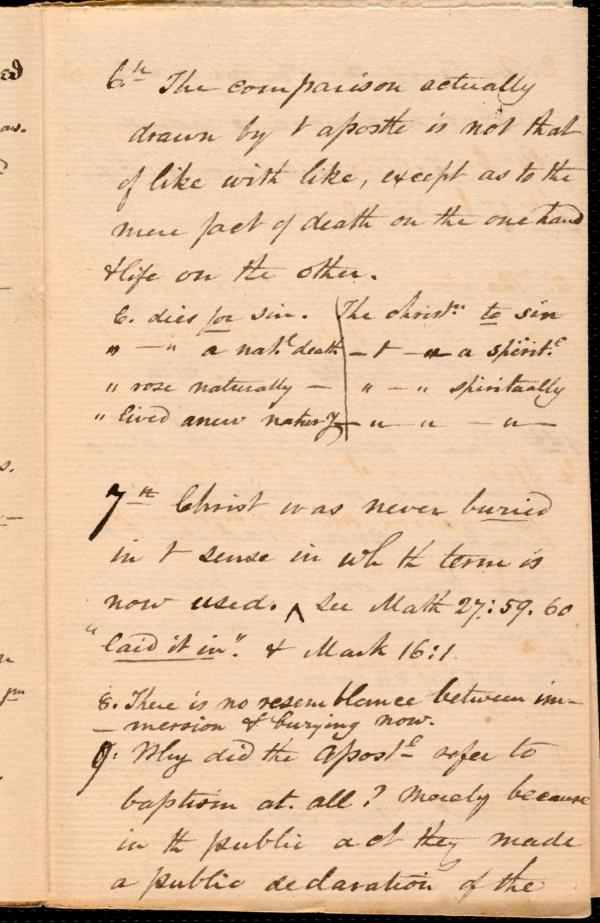 6th The comparison actually
drawn by t apostle is not that
of like with like, except as to the
mere fact of death on the one hand
& life on the other.
C. dies for sin. The christn to sin
" — " a natl death — t — " a spiritl
" rose naturally — " — " spiritually
" lived anew — " — " — " —
7th Christ was never buried
in t sense in wh th term is
now used. ^ see Math 27:59.60
"laid it in". & Mark 16:1
8. There is no resemblance between im-
— mersion & burying now.
9. Why did the apostle refer to
baptism at all? Merely because
in th public act they made
a public declaration of the